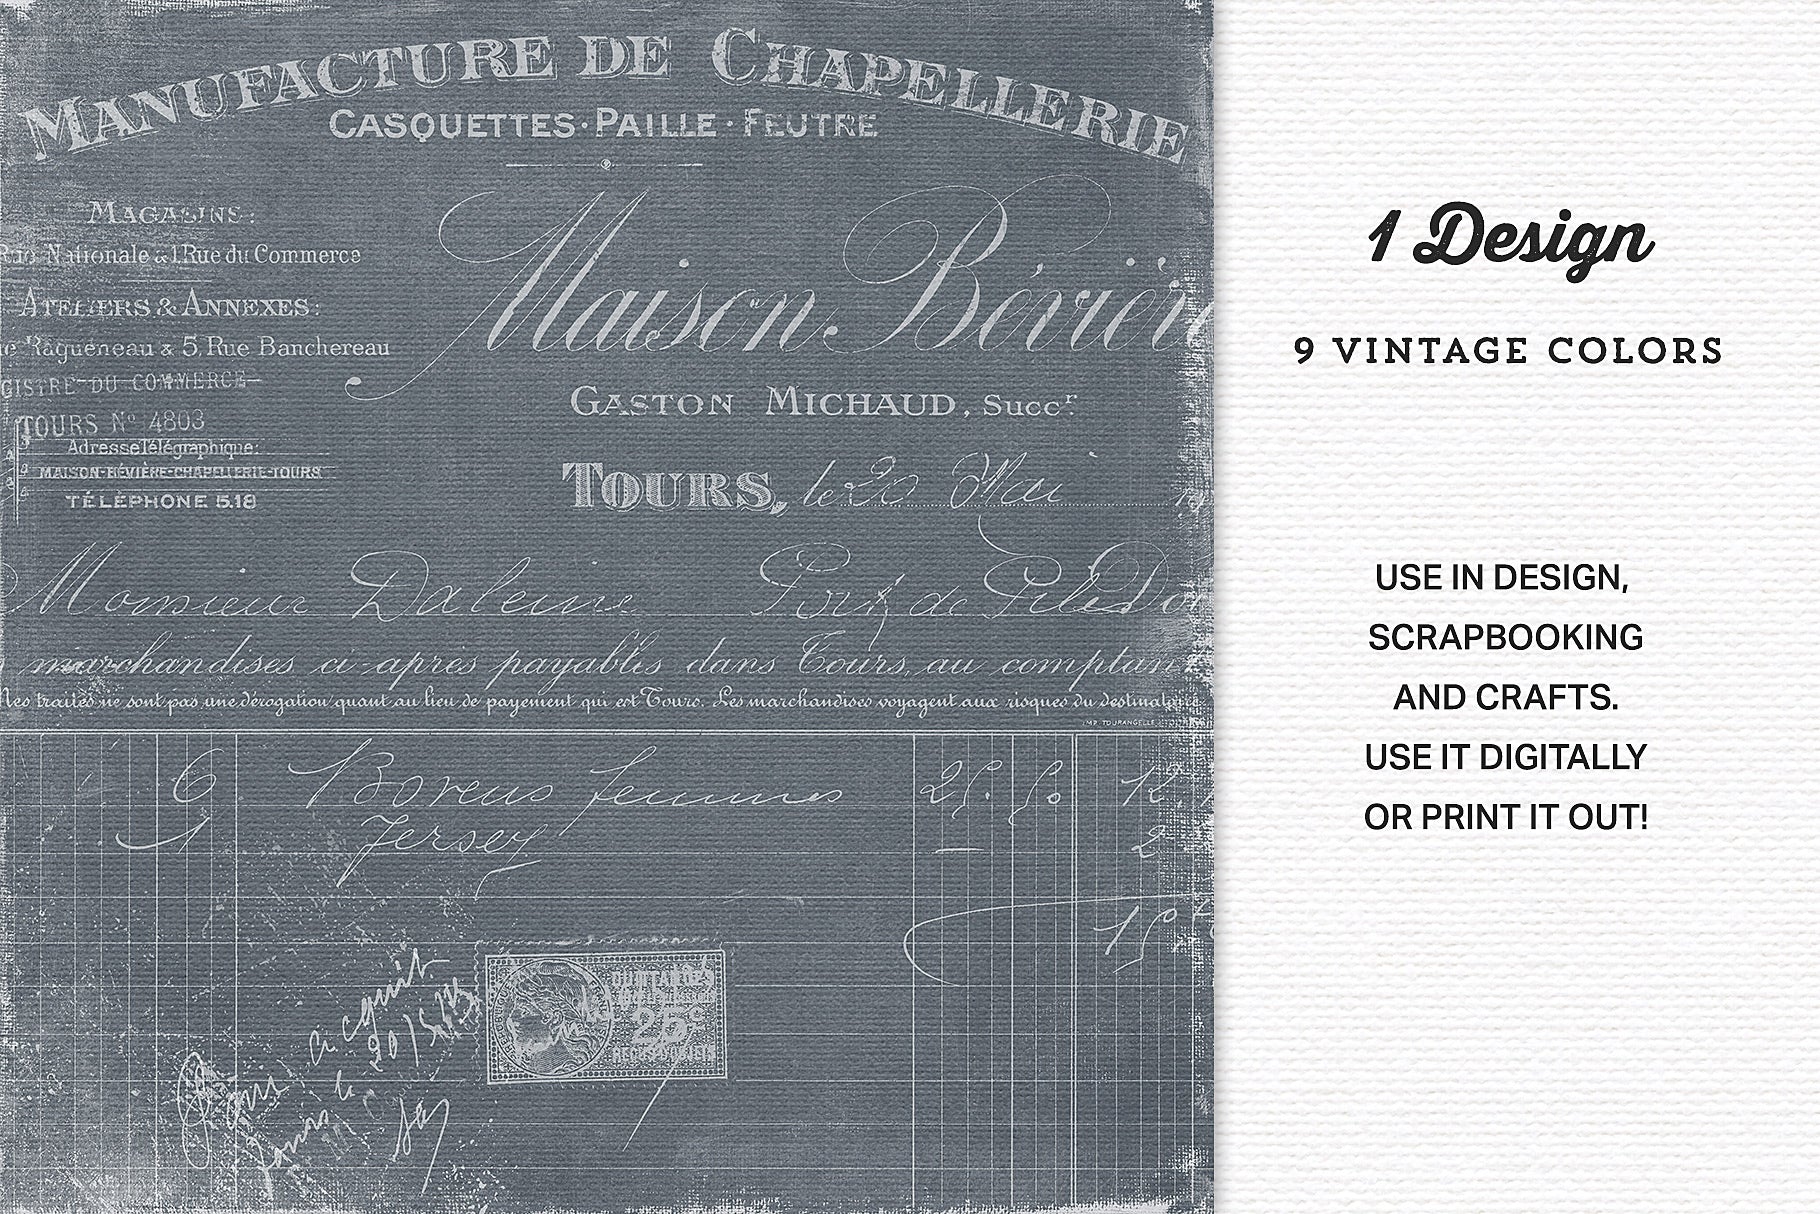 MANUFACTURE DE CHAPELLERIE
CASQUETTES · PAILLE · FEUTRE
MAGASINS:
Nationale & 1 Rue du Commerce
ATELIERS & ANNEXES:
Ragueneau & 5, Rue Banchereau
GISTRE DU COMMERCE
TOURS Nº 4803
Adresse Télégraphique:
MAISON-BÉVIÈRE-CHAPELLERIE-TOURS
TÉLÉPHONE 5.18
Maison Bévière
GASTON MICHAUD, Succr.
TOURS, le 20 Mai
Monsieur Port de
marchandises ci-après payables dans Tours, au comptan
Les traites ne sont pas une dérogation quant au lieu de payement qui est Tours. Les marchandises voyagent aux risques du destinataire
IMP. TOURANGELLE
6 femmes 12
1 Jersey 2
15
acquit
QUITTANCES
25c
1 Design
9 VINTAGE COLORS
USE IN DESIGN,
SCRAPBOOKING
AND CRAFTS.
USE IT DIGITALLY
OR PRINT IT OUT!